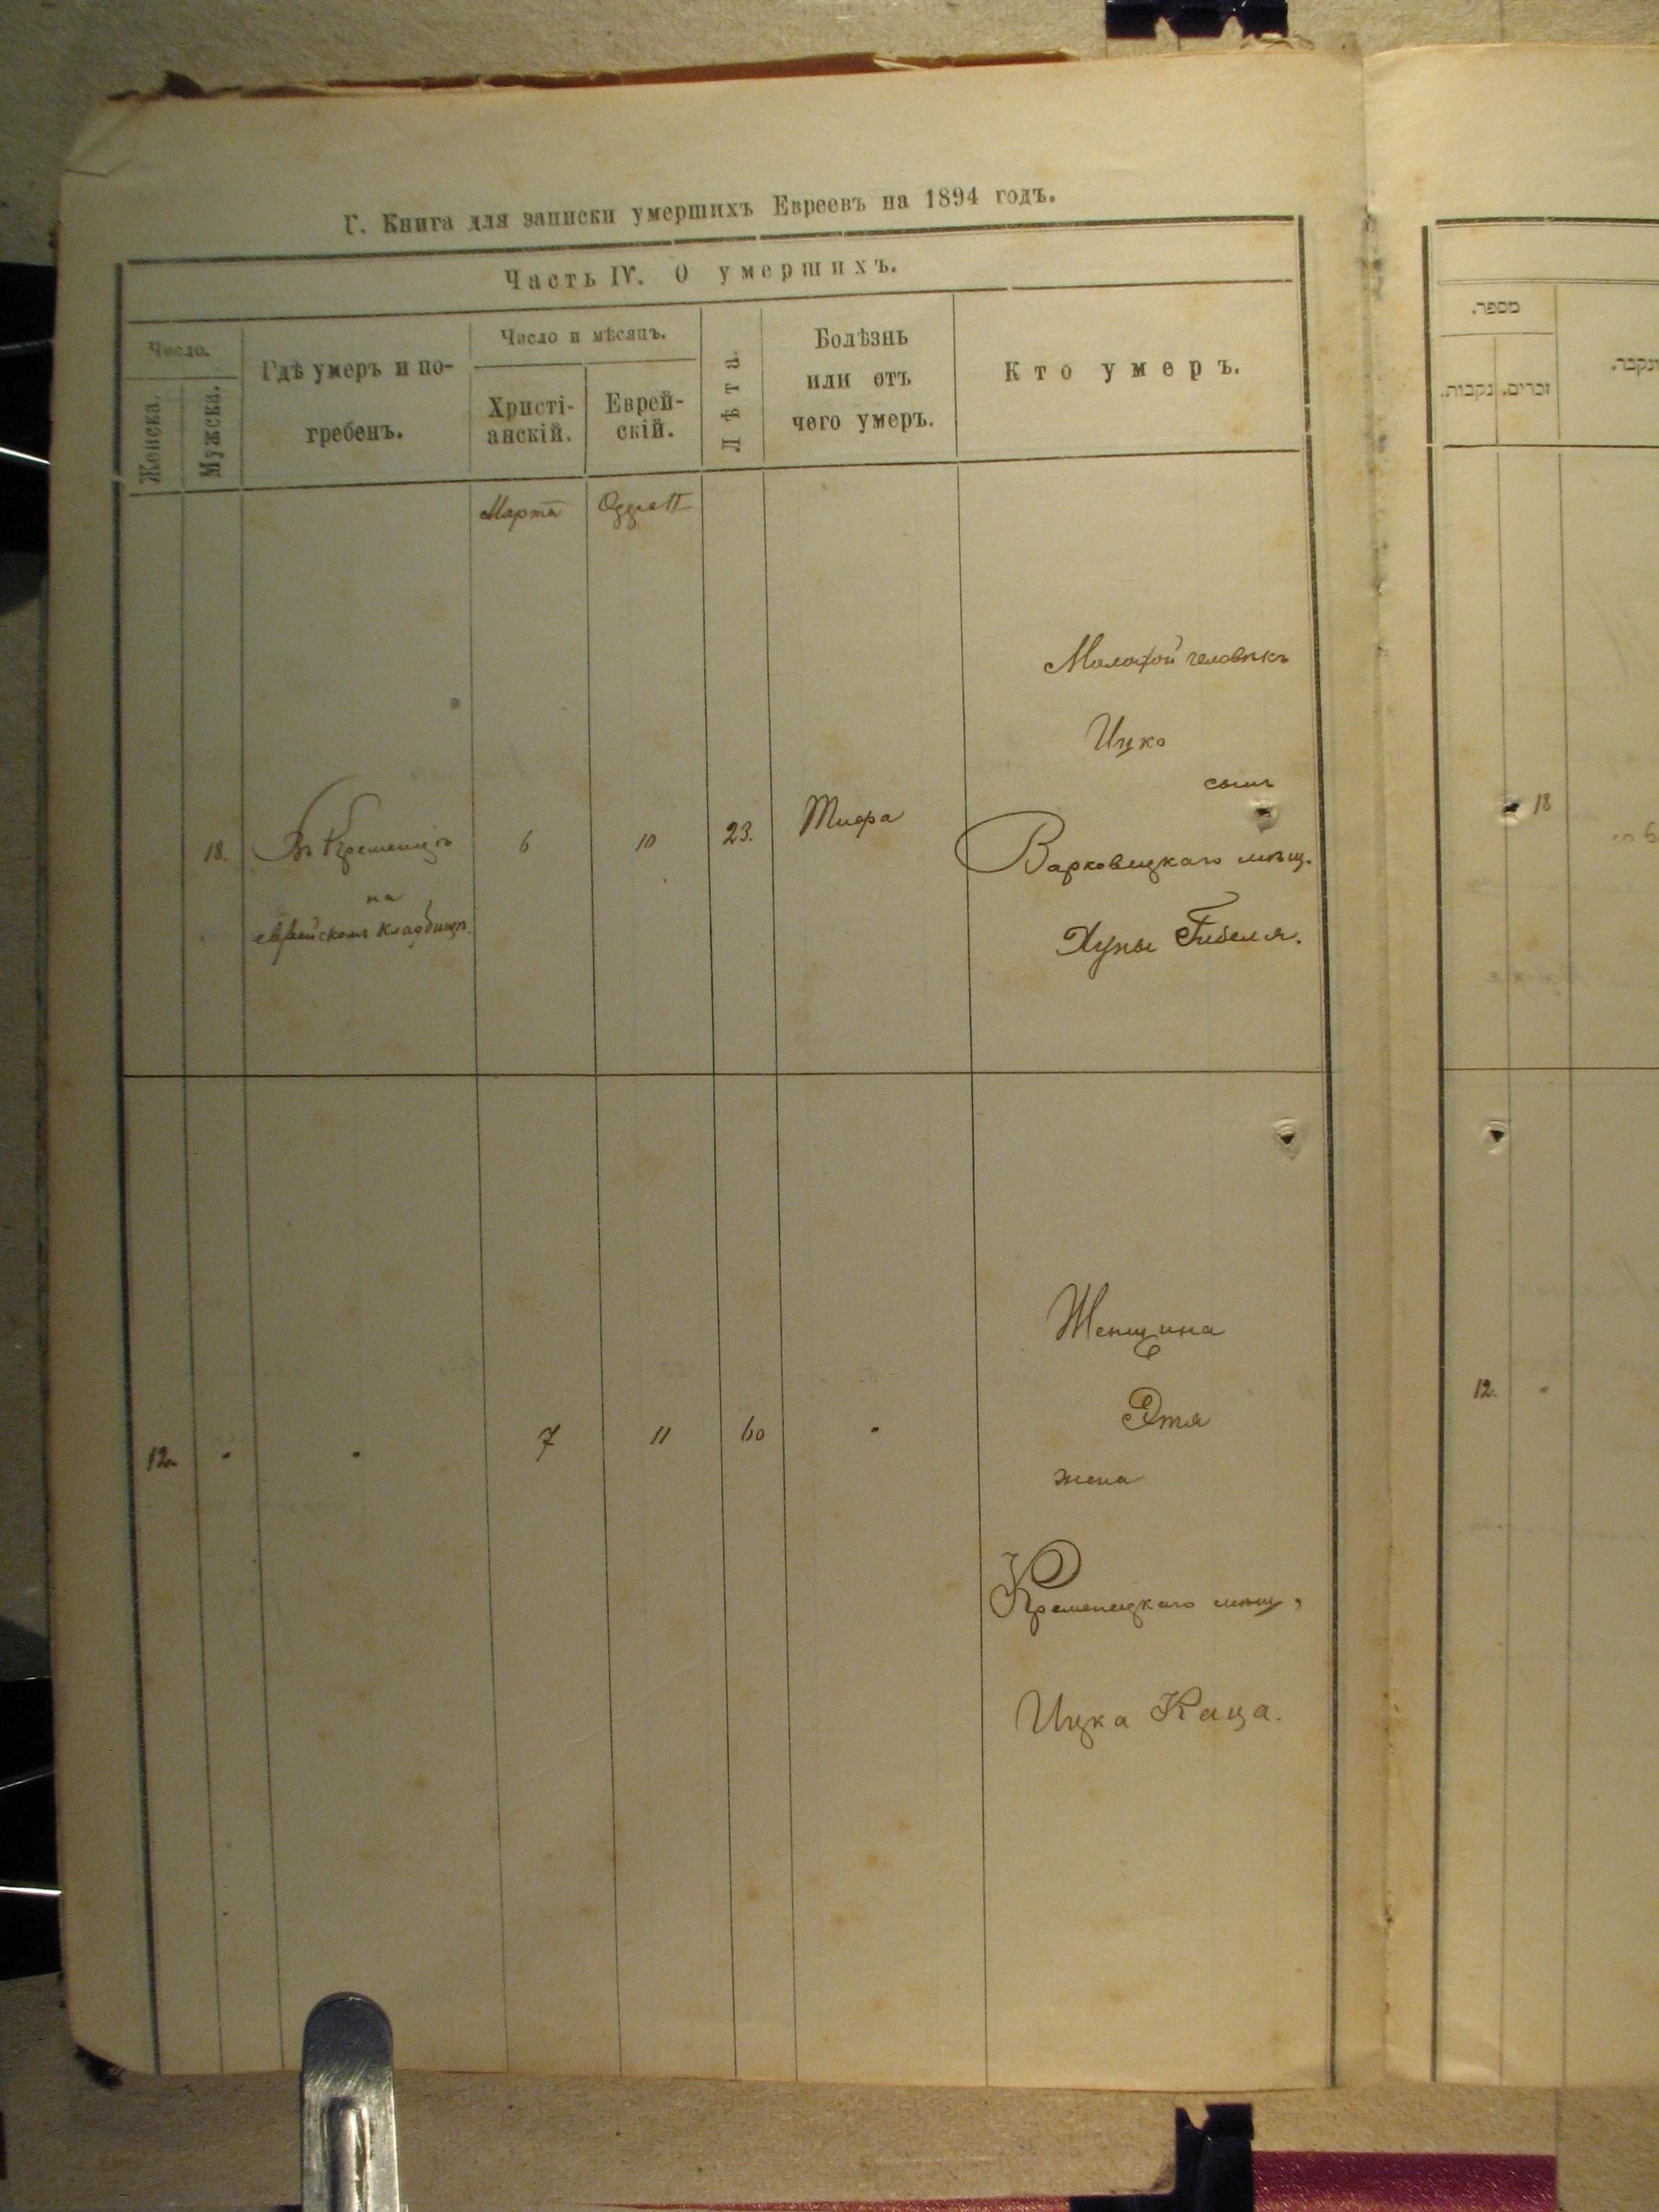 Г. Книга для записки умершихъ Евреевъ на 1894 годъ.
Часть IV. О умершихъ.
Число.
Женска.
Мужска.
Гдѣ умеръ и по-
гребенъ.
Число и мѣсяцъ.
Христі-
анскій.
Еврей-
скій.
Лѣта.
Болѣзнь
или отъ
чего умеръ.
Кто умеръ.
Марта
18.
Въ Кременцѣ
на
еврейскомъ кладбищѣ.
6
10
23.
Тифа
Молодой человѣкъ
Ицко
сынъ
Варковицкаго мѣщ.
Хуны
12
7
11
60
Женщина
Этя
жена
Кременецкаго мѣщ,
Ицка Каца.
מספר.
זכרים.
נקבות.
18
12.